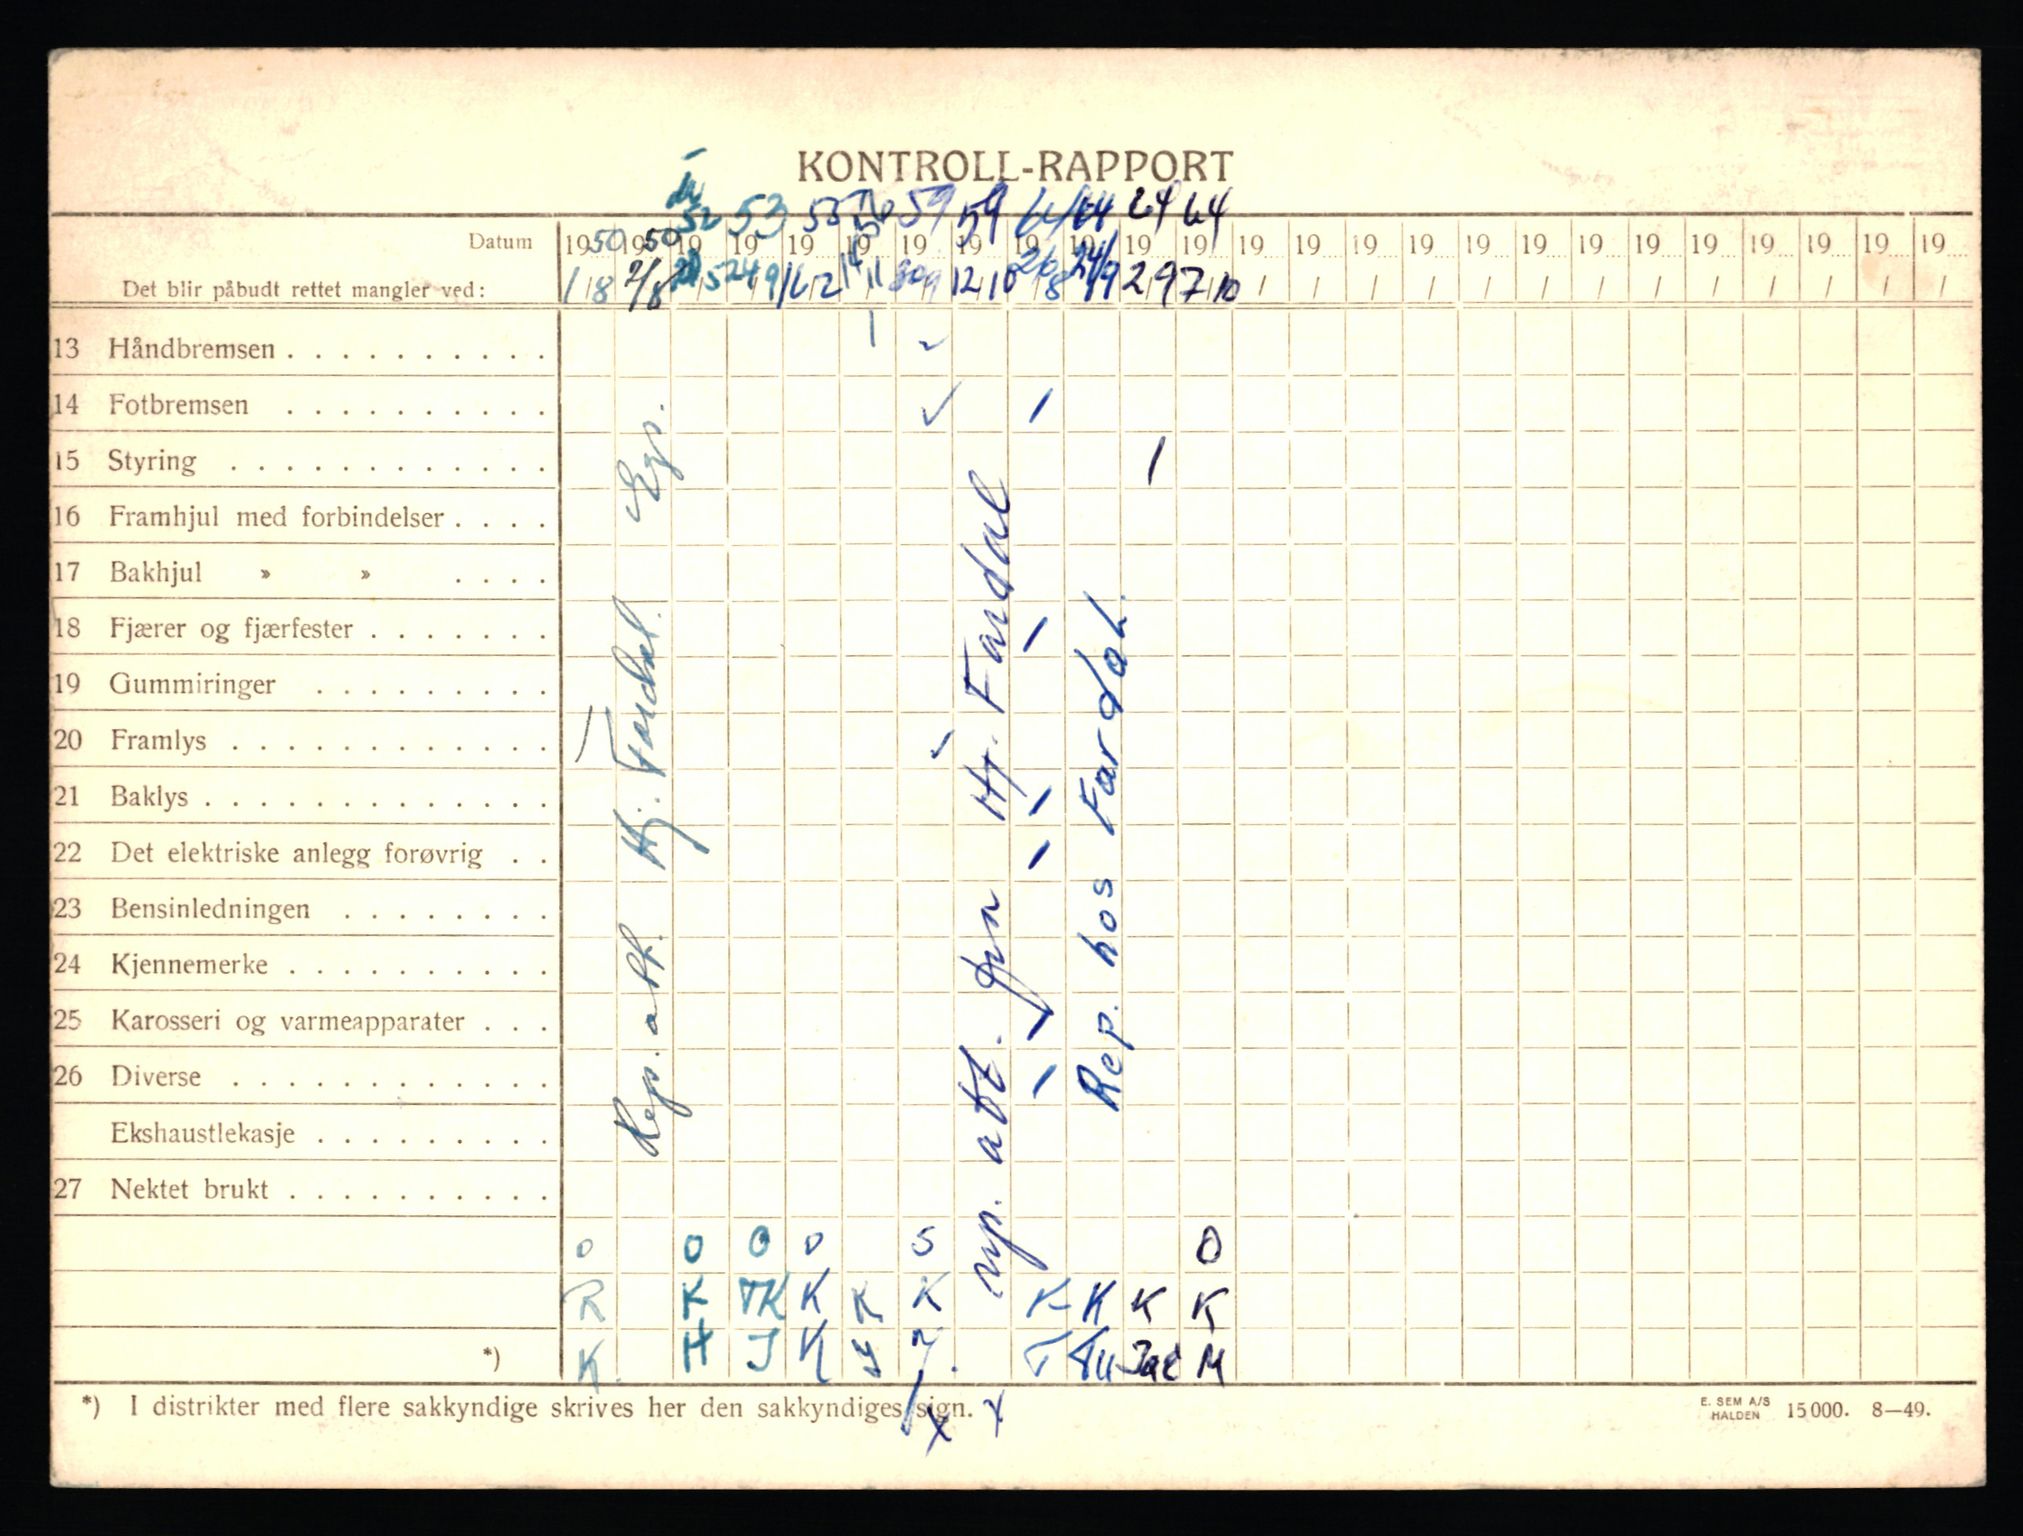 KONTROLL-RAPPORT
52 53 55 56 59 59 64 64 64 64
Datum 1950 1950 19 19 19 19 19 19 19 19 19 19 19 19 19 19 19 19 19 19 19 19 19 19 19
Det blir påbudt rettet mangler ved: 1/8 2/8 5 24/9 16/2 11 30/9 12/10 26/8 24/9 2/9 7/10 / / / / / / / / / / / / /
13 Håndbremsen . . . . . . . . . .
14 Fotbremsen . . . . . . . . . .
15 Styring . . . . . . . . . . . .
16 Framhjul med forbindelser . . . .
17 Bakhjul » » . . . .
18 Fjærer og fjærfester . . . . . . .
19 Gummiringer . . . . . . . . .
20 Framlys . . . . . . . . . . . .
21 Baklys . . . . . . . . . . . . .
22 Det elektriske anlegg forøvrig . .
23 Bensinledningen . . . . . . . .
24 Kjennemerke . . . . . . . . . .
25 Karosseri og varmeapparater . . .
26 Diverse . . . . . . . . . . . .
Ekshaustlekasje . . . . . . . . .
27 Nektet brukt . . . . . . . . . .
Rep. att. Hj. Fardal. Egs.
rep. att. fra Hj. Fardal
Rep. hos Fardal.
0 0 0 0 S 0
R K TK K K K K K K K
*) K. H J K J T Tu Jac M
*) I distrikter med flere sakkyndige skrives her den sakkyndiges sign. x x
E. SEM A/S
HALDEN 15000. 8—49.